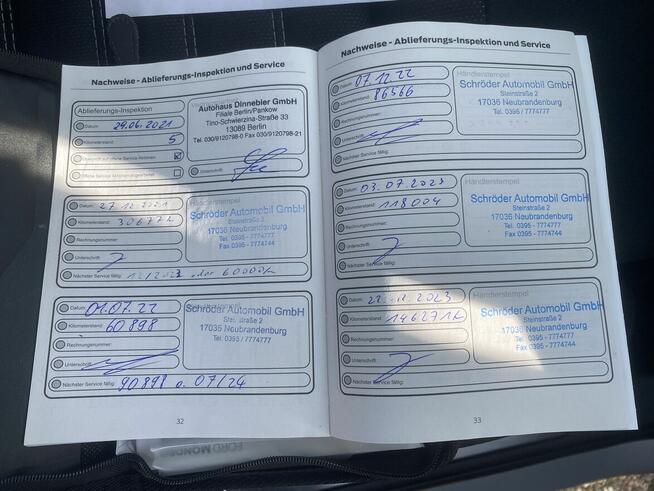 Nachweise - Ablieferungs-Inspektion und Service
Ablieferungs-Inspektion
Datum: 29.06.2021
Kilometerstand: 5
Autohaus Dinnebier GmbH
Filiale Berlin/Pankow
Tino-Schwierzina-Straße 33
13089 Berlin
Tel. 030/9120798-0 Fax 030/9120798-21
Unterschrift:
Datum: 27.12.2021
Kilometerstand:
Rechnungsnummer:
Unterschrift:
Nächster Service fällig: 12/2023 oder 60000k
Schröder Automobil GmbH
Steinstraße 2
17036 Neubrandenburg
Tel. 0395 - 7774777
Datum: 01.07.22
Kilometerstand: 60898
Rechnungsnummer:
Unterschrift:
Nächster Service fällig: 90898 o. 07/24
Schröder Automobil GmbH
17036 Neubrandenburg
Tel. 0395 / 7774777
32
Nachweise - Ablieferungs-Inspektion und Service
Datum: 07.12.22
Kilometerstand: 86566
Rechnungsnummer:
Unterschrift:
Nächster Service fällig:
Händlerstempel
Schröder Automobil GmbH
Steinstraße 2
17036 Neubrandenburg
Tel. 0395 / 7774777
Datum: 03.07.2023
Kilometerstand: 118004
Rechnungsnummer:
Unterschrift:
Nächster Service fällig:
Händlerstempel
Schröder Automobil GmbH
Steinstraße 2
17036 Neubrandenburg
Tel. 0395 - 7774777
Fax 0395 - 7774744
Datum: 22.12.2023
Kilometerstand: 146271k
Rechnungsnummer:
Unterschrift:
Nächster Service fällig:
Händlerstempel
Schröder Automobil GmbH
Steinstraße 2
17036 Neubrandenburg
Tel. 0395 - 7774777
Fax 0395 - 7774744
33
FORD MONDE